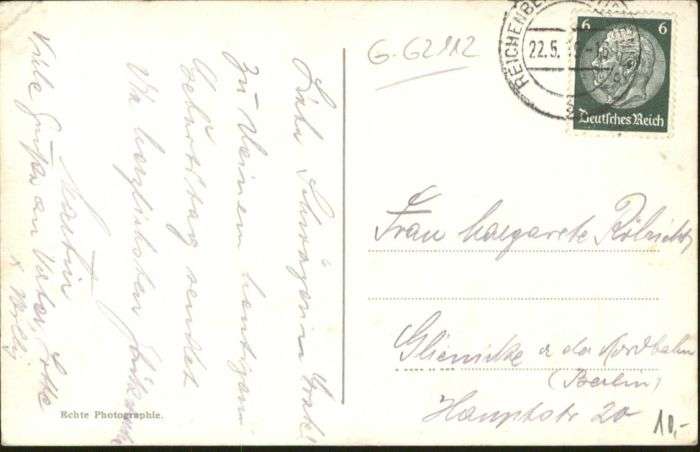 Liebe Schwägerin Grete!
Zu Deinem heutigen
Geburtstag sendet
Die herzlichsten Glückwünsche
Martin
Viele Grüße an Vater, Lotte
u Willy
Echte Photographie.
G-G2112
REICHENBE
22.5.
6 6
Deutsches Reich
Frau Margarete
Glienicke a der Nordbahn
(Berlin)
Hauptstr 20
10,-